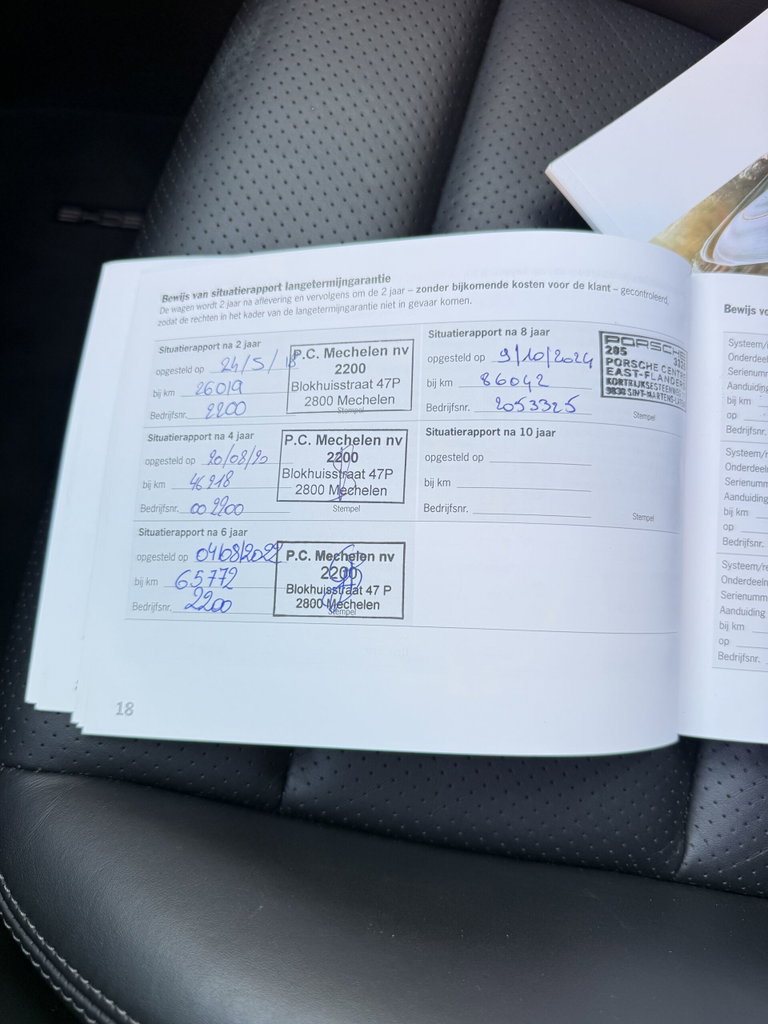 Bewijs van situatierapport langetermijngarantie
De wagen wordt 2 jaar na aflevering en vervolgens om de 2 jaar – zonder bijkomende kosten voor de klant – gecontroleerd,
zodat de rechten in het kader van de langetermijngarantie niet in gevaar komen.
Situatierapport na 2 jaar
opgesteld op 24/5/18
bij km 26019
Bedrijfsnr. 2200
P.C. Mechelen nv
2200
Blokhuisstraat 47P
2800 Mechelen
Stempel
Situatierapport na 4 jaar
opgesteld op 20/08/20
bij km 46918
Bedrijfsnr. 002200
P.C. Mechelen nv
2200
Blokhuisstraat 47P
2800 Mechelen
Stempel
Situatierapport na 6 jaar
opgesteld op 04/08/2022
bij km 65772
Bedrijfsnr. 2200
P.C. Mechelen nv
2200
Blokhuisstraat 47 P
2800 Mechelen
Stempel
Situatierapport na 8 jaar
opgesteld op 9/10/2024
bij km 86042
Bedrijfsnr. 2053325
PORSCHE
205
PORSCHE
EAST-FLANDER
9830 SINT-MARTENS
Stempel
Situatierapport na 10 jaar
opgesteld op
bij km
Bedrijfsnr.
Stempel
18
Bewijs
Systeem/
Onderdeel
Serienumm
Aanduiding
bij km
op
Bedrijfsnr.
Systeem/
Onderdeel
Serienumm
Aanduiding
bij km
op
Bedrijfsnr.
Systeem/re
Onderdeel
Serienumm
Aanduiding
bij km
op
Bedrijfsnr.